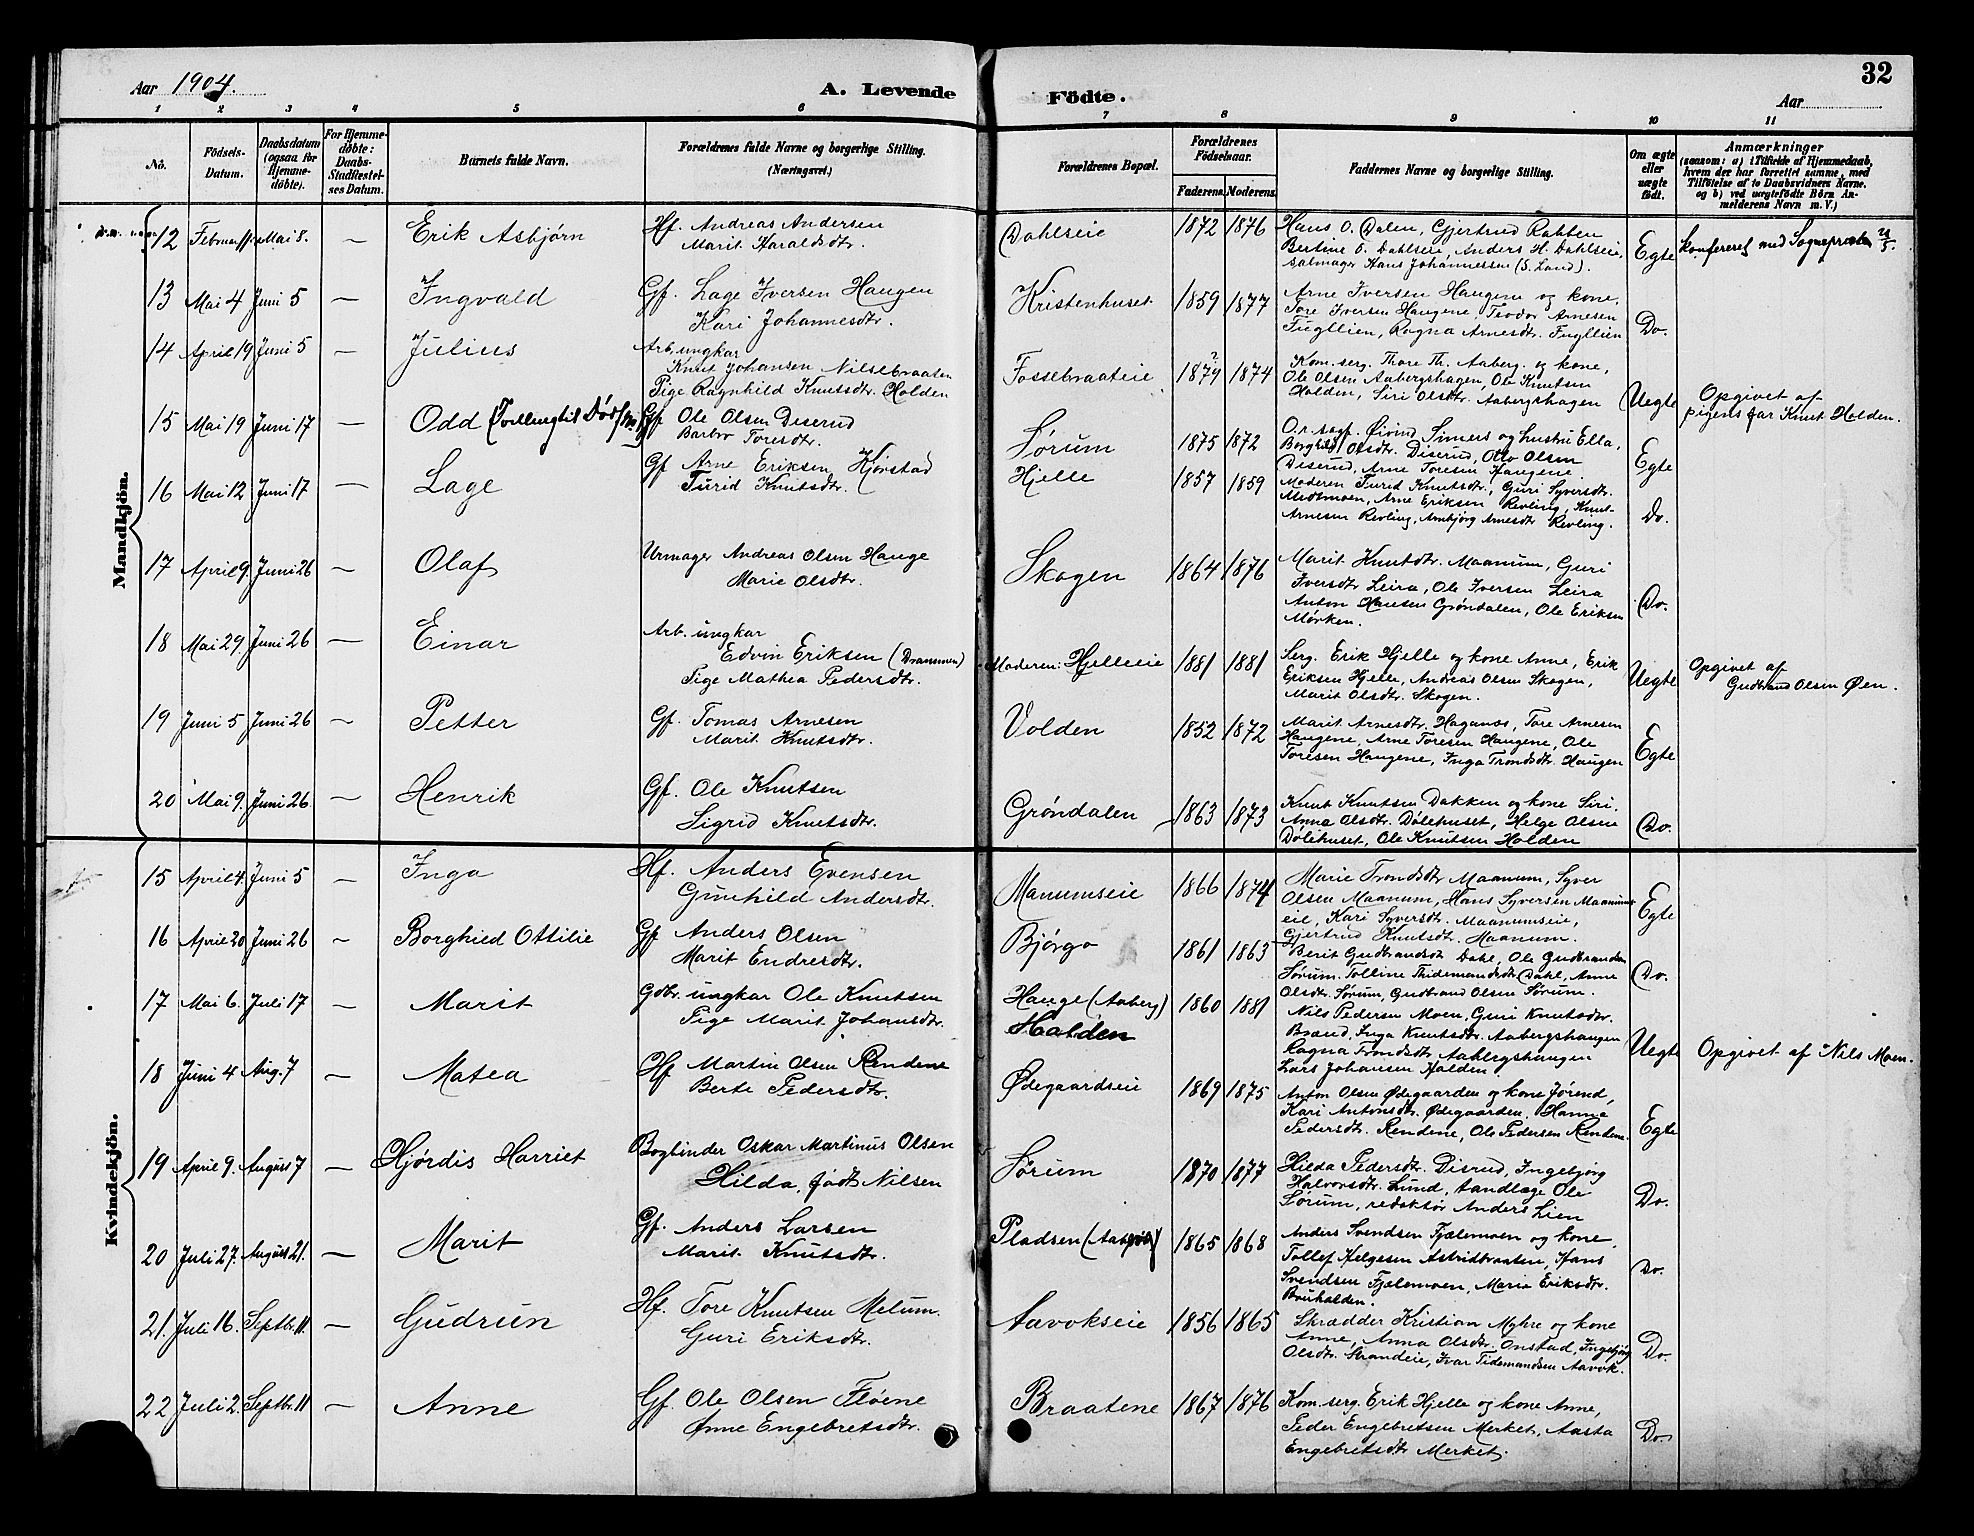 Aar 1904.
A. Levende Födte.
32
Aar
1 2 3 4 5 6 7 8 9 10 11
No.
Födsels-Datum.
Daabsdatum (ogsaa for Hjemme-döbte).
For Hjemme-döbte: Daabs-Stadfæstel-ses Datum.
Barnets fulde Navn.
Forældrenes fulde Navne og borgerlige Stilling. (Næringsvei.)
Forældrenes Bopæl.
Forældrenes Födselsaar.
Faderens. Moderens.
Faddernes Navne og borgerlige Stilling.
Om ægte eller uægte födt.
Anmærkninger
(saasom: a) i Tilfælde af Hjemmedaab, hvem der har forrettet samme, med Tilföielse af to Daabsvidners Navne, og b) ved uægtefödte Börn An-melderens Navn m. V.)
Mandkjön.
12 Februar 11 Mai 8. — Erik Asbjørn
Hf. Andreas Andersen
Marit Haraldsdtr.
Dahlseie 1872 1876
Hans O. Dalen, Gjertrud Rabben
Bertine O. Dahlseie, Anders H. Dahlseie,
salmager Hans Johannessen (S. Land).
Egte
konfereret med Sognepresten
13 Mai 4 Juni 5 — Ingvald
Gf. Lage Iversen Haugen
Kari Johannesdtr.
Kristenhuset 1859 1877
Arne Iversen Haugene og kone,
Tore Iversen Haugene, Teodor Arnesen
Fugllien, Ragna Arnesdtr. Fugllien
Do.
14 April 19 Juni 5 — Julius
Arb. ungkar
Knut Johansen Nilsebraaten
Pige Ragnhild Knutsdtr. Holden
Fossebraateie 1879 1874
Kom. serg. Thore Th. Aaberg og kone,
Ole Olsen Aabergshagen, Ole Knutsen
Holden, Siri Olsdtr. Aabergshagen
Uegte
Opgivet af
pigens far Knut Holden.
15 Mai 19 Juni 17 — Odd
Gf. Ole Olsen Diserud
Barbro Toresdtr.
Sørum 1875 1872
O.r. sagf. Øivind Simers og hustru Ella,
Borghild Olsdtr. Diserud, Otto Olsen
Diserud, Arne Toresen Haugene
Egte
16 Mai 12 Juni 17 — Lage
Gf Arne Eriksen Kjørstad
Turid Knutsdtr.
Hjelle 1857 1859
Moderen Turid Knutsdtr., Guri Syversdtr.
Medtmoen, Arne Eriksen Revling, Knut
Arnesen Revling, Arnbjørg Arnesdtr Revling.
Do.
17 April 9. Juni 26 — Olaf
Urmager Andreas Olsen Hauge
Marie Olsdtr.
Skogen 1864 1876
Marit Knutsdtr. Maanum, Guri
Iversdtr Leira, Ole Iversen Leira
Anton Hansen Grøndalen, Ole Eriksen
Mørken.
Do.
18 Mai 29. Juni 26 — Einar
Arb. ungkar
Edvin Eriksen (Drammen)
Pige Mathea Pedersdtr.
Moderen: Hjelleeie 1881 1881
Serg. Erik Hjelle og kone Anne, Erik
Eriksen Hjelle, Andreas Olsen Skogen,
Marit Olsdtr. Skogen.
Uegte
Opgivet af
Gudbrand Olsen Øen.
19 Juni 5 Juni 26 — Petter
Gf. Tomas Arnesen
Marit Knutsdtr.
Volden 1852 1872
Marit Arnesdtr. Haganæs, Tore Arnesen
Haugene, Arne Toresen Haugene, Ole
Toresen Haugene, Inga Trondsdtr. Haugen
Egte
20 Mai 9. Juni 26. — Henrik
Gf. Ole Knutsen
Sigrid Knutsdtr.
Grøndalen 1863 1873
Knut Knutsen Dokken og kone Siri.
Anna Olsdtr. Dølehuset, Helge Olsen
Dølehuset, Ole Knutsen Holden
Do.
Kvindekjön.
15 April 4. Juni 5 — Inga
Hf. Anders Evensen
Gunhild Andersdtr.
Manumseie 1866 1874
Marie Trondsdtr Maanum, Syver
Olsen Maanum, Hans Syversen Maanums-
eie, Kari Syversdtr. Maanumseie,
Gjertrud Knutsdtr. Maanum.
Egte
16 April 20 Juni 26 — Borghied Ottilie
Gf Anders Olsen
Marit Endresdtr.
Bjørgo 1861 1863
Berit Gudbrandsdtr Dahl, Ole Gudbrandsen
Sørum. Tolline Thidemandsdtr Dahl, Anne
Olsdtr. Sørum, Gudbrand Olsen Sørum.
Do.
17 Mai 6. Juli 17 — Marit
Gdbr. ungkar Ole Knutsen
Pige Marit Johansdtr.
Hauge (Aaberg) 1860 1881
Holden
Nils Pedersen Moen, Guri Knutsdtr.
Braand, Inga Knutsdtr. Aabergshaugen
Ragna Trondsdtr Aabergshaugen
Lars Johansen Holden.
Uegte
Opgivet af Nils Moen.
18 Juni 4 Aug. 7 — Matea
Hf Martin Olsen Rendene
Berte Pedersdtr.
Ødegaardseie 1869 1875
Anton Olsen Ødegaarden og kone Jørend,
Kari Antonsdtr. Ødegaarden, Hanne
Pedersdtr. Rendene, Ole Pedersen Rendene.
Egte
19 April 9. August 7 — Hjørdis Harriet
Bogbinder Oskar Martinus Olsen
Hilda, født Nilsen
Sørum 1870 1877
Hilda Pedersdtr. Disrud, Ingebjørg
Halvorsdtr. Lund, tandlæge Ole
Sørum, redaktør Anders Lien
Do.
20 Juli 27. August 21. — Marit
Gf. Anders Larsen
Marit Knutsdtr.
Pladsen 1865 1868
Anders Svendsen Fjælemoen og kone,
Tollef Helgesen Astridbraaten, Hans
Svendsen Fjælemoen, Marie Eriksdtr.
Bruhalden.
Do.
21. Juli 16. Septbr. 11. — Gudrun
Hf. Tore Knutsen Melum
Guri Eriksdtr.
Aavokseie 1856 1865
Skrædder Kristian Myhre og kone
Anne, Anna Olsdtr. Onstad, Ingebjørg
Olsdtr. Strandeie, Ivar Tidemandsen Aavok.
Do.
22 Juli 2. Septbr. 11 — Anne
Gf. Ole Olsen Fløene
Anne Engebretsdtr.
Braatene 1867 1876
Kom. serg. Erik Hjelle og kone Anne,
Peder Engebretsen Merket, Aasta
Engebretsdtr Merket.
Do.